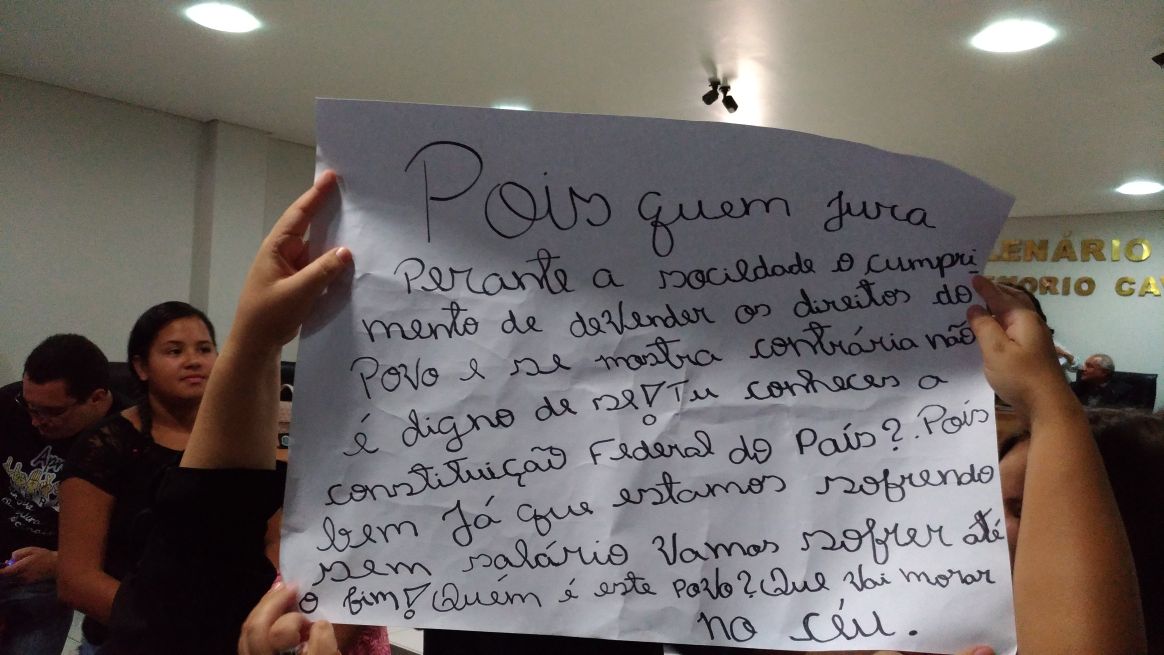 Pois quem jura
Perante a sociedade o cumpri-
mento de devender os direitos do
Povo e se mostra contrária não
é digno de se! Tu conheces a
constituição Federal do País?. Pois
bem já que estamos sofrendo
sem salário Vamos sofrer até
o fim! Quém é este povo? Que Vai morar
no céu.
LENÁRIO
ORIO CA